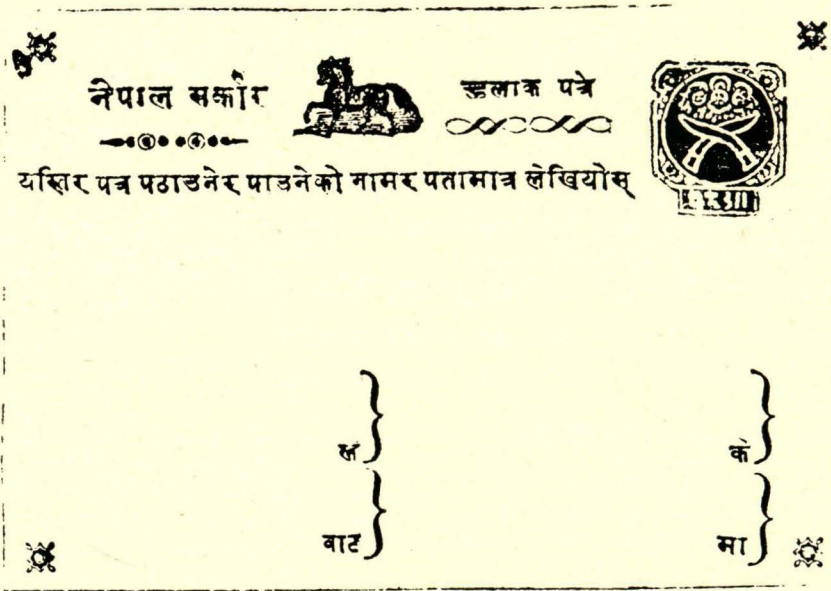 नेपाल सर्कार हलाक पत्रे
यस्तिर पत्र पठाउनेर पाउनेको नामर पतामात्र लेखियोस्
ले कं
बाट मा